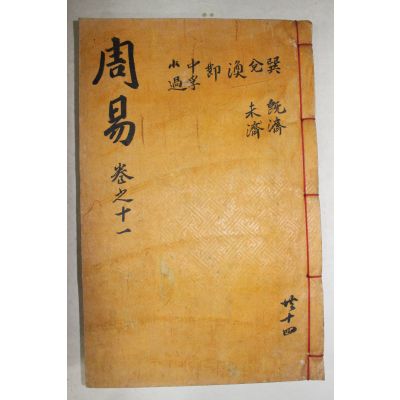 周易
卷之十一
巽
兌
渙
節
中孚
小過
既濟
未濟
共十四